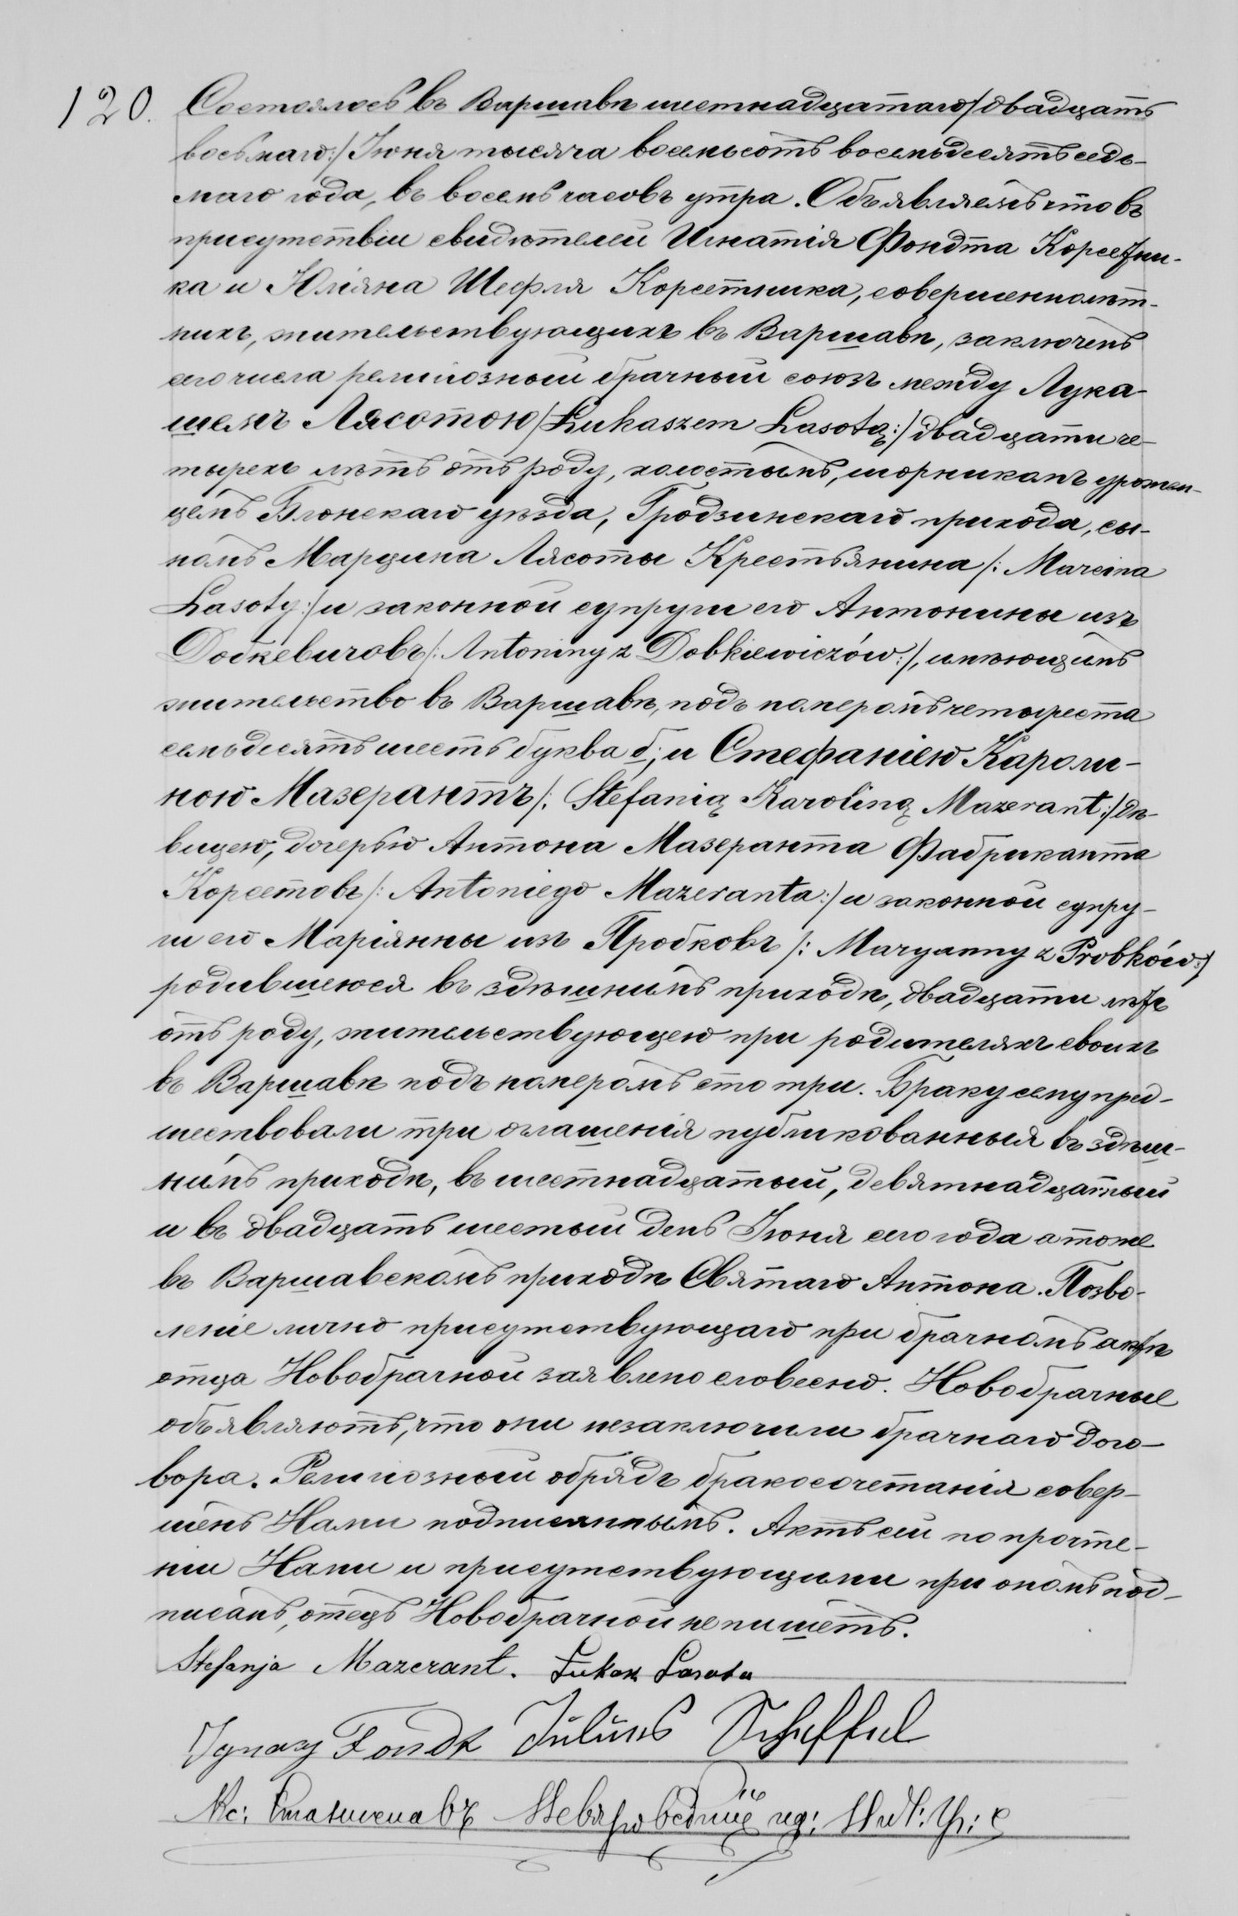 120. Состоялось въ Варшавѣ шестнадцатаго/двадцать
восьмаго:/ Іюня тысяча восемьсотъ восемьдесятъ седь-
маго года, въ восемь часовъ утра. Объявляемъ что въ
присутствіи свидѣтелей Игнатія Фондта Корсетни-
ка и Юліяна Шефля Корсетника, совершеннолѣт-
нихъ, жительствующихъ въ Варшавѣ, заключенъ
сего числа религіозный брачный союзъ между Лука-
шемъ Лясотою /Łukaszem Lasotą:/ двадцати че-
тырехъ лѣтъ отъ роду, холостымъ, шорникомъ урожен-
цемъ Блонскаго уѣзда, Гродзискаго прихода, сы-
номъ Марцина Лясоты Крестьянина /: Marcina
Lasoty:/ и законной супруги его Антонины изъ
Добкевичовъ /: Antoniny z Dobkiewiczów:/, имѣющимъ
жительство въ Варшавѣ, подъ номеромъ четыреста
семьдесятъ шесть буква б; и Стефаніею Кароли-
ною Мазерантъ /: Stefanią Karoliną Mazerant:/ дѣ-
вицею, дочерью Антона Мазеранта Фабриканта
Корсетовъ /: Antoniego Mazeranta:/ и законной супру-
ги его Маріянны изъ Пробковъ /: Maryanny z Probków:/
родившеюся въ здѣшнимъ приходѣ, двадцати лѣтъ
отъ роду, жительствующею при родителяхъ своихъ
въ Варшавѣ подъ номеромъ сто три. Браку сему пред-
шествовали три оглашенія публикованныя въ здѣш-
нимъ приходѣ, въ шестнадцатый, девятнадцатый
и въ двадцать шестый день Іюня сего года а тоже
въ Варшавскомъ приходѣ Святаго Антона. Позво-
леніе лично присутствующаго при брачномъ актѣ
отца Новобрачной заявлено словесно. Новобрачные
объявляютъ, что они незаключили брачнаго дого-
вора. Религіозный обрядъ бракосочетанія совер-
шёнъ Нами подписаннымъ. Актъ сей по прочте-
ніи Нами и присутствующими при ономъ под-
писанъ, отецъ Новобрачной не пишетъ.
Stefanja Mazerant. Łukasz Lasota
Ignacy Fondt Julius Scheffel
Кс: Станиславъ